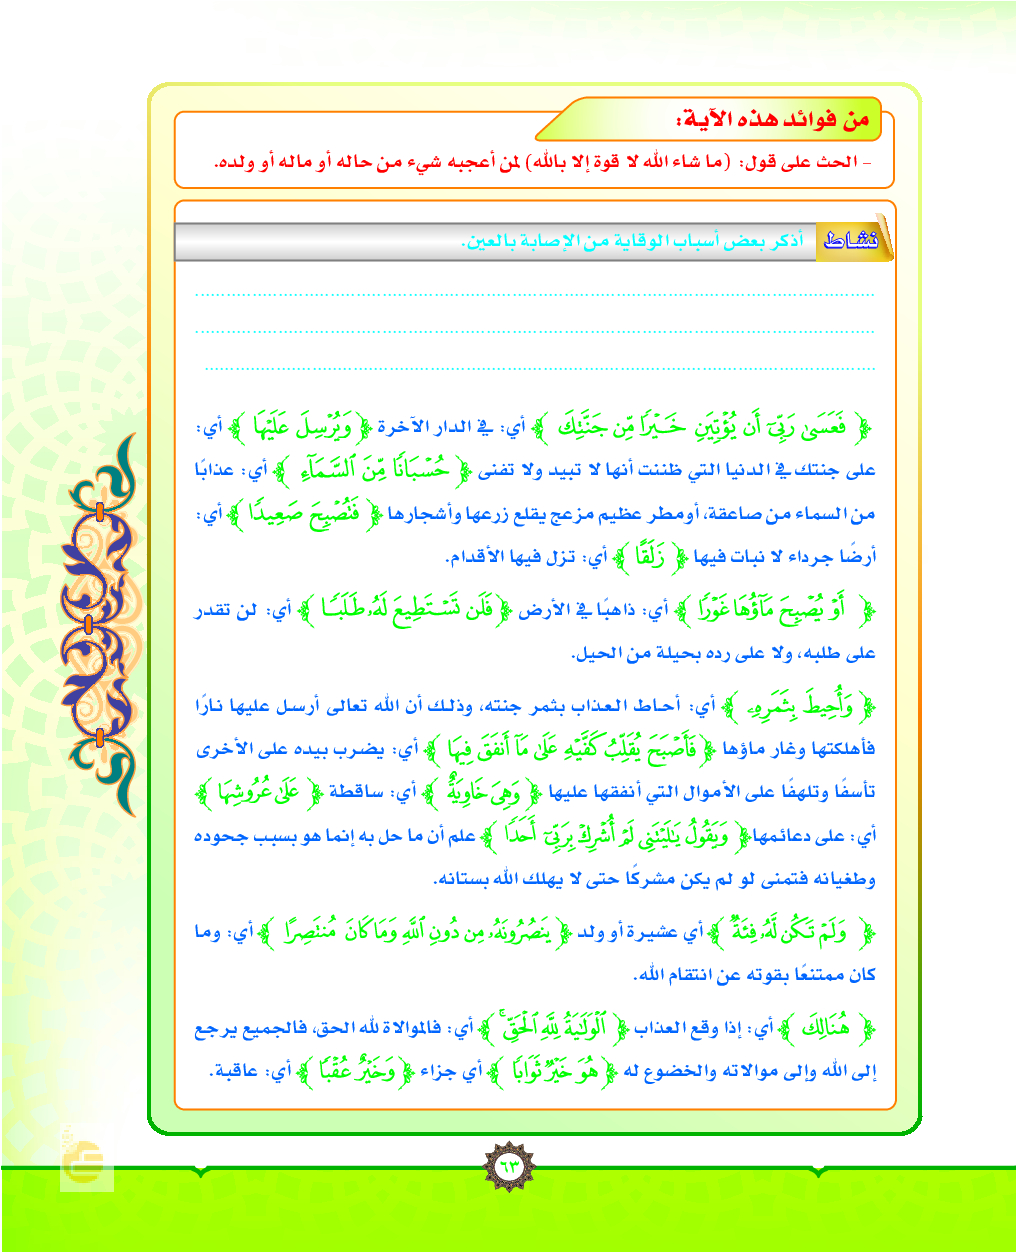 من فوائد هذه الآية:
- الحث على قول: (ما شاء الله لا قوة إلا بالله) لمن أعجبه شيء من حاله أو ماله أو ولده.
نشاط أذكر بعض أسباب الوقاية من الإصابة بالعين.
﴿ فَعَسَىٰ رَبِّيٓ أَن يُؤۡتِيَنِ خَيۡرٗا مِّن جَنَّتِكَ ﴾ أي: في الدار الآخرة ﴿ وَيُرۡسِلَ عَلَيۡهَا ﴾ أي:
على جنتك في الدنيا التي ظننت أنها لا تبيد ولا تفنى ﴿ حُسۡبَانٗا مِّنَ ٱلسَّمَآءِ ﴾ أي: عذابًا
من السماء من صاعقة، أو مطر عظيم مزعج يقلع زرعها وأشجارها ﴿ فَتُصۡبِحَ صَعِيدٗا ﴾ أي:
أرضًا جرداء لا نبات فيها ﴿ زَلَقًا ﴾ أي: تزل فيها الأقدام.
﴿ أَوۡ يُصۡبِحَ مَآؤُهَا غَوۡرٗا ﴾ أي: ذاهبًا في الأرض ﴿ فَلَن تَسۡتَطِيعَ لَهُۥ طَلَبٗا ﴾ أي: لن تقدر
على طلبه، ولا على رده بحيلة من الحيل.
﴿ وَأُحِيطَ بِثَمَرِهِۦ ﴾ أي: أحاط العذاب بثمر جنته، وذلك أن الله تعالى أرسل عليها نارًا
فأهلكتها وغار ماؤها ﴿ فَأَصۡبَحَ يُقَلِّبُ كَفَّيۡهِ عَلَىٰ مَآ أَنفَقَ فِيهَا ﴾ أي: يضرب بيده على الأخرى
تأسفًا وتلهفًا على الأموال التي أنفقها عليها ﴿ وَهِيَ خَاوِيَةٌ ﴾ أي: ساقطة ﴿ عَلَىٰ عُرُوشِهَا ﴾
أي: على دعائمها ﴿ وَيَقُولُ يَٰلَيۡتَنِي لَمۡ أُشۡرِكۡ بِرَبِّيٓ أَحَدٗا ﴾ علم أن ما حل به إنما هو بسبب جحوده
وطغيانه فتمنى لو لم يكن مشركًا حتى لا يهلك الله بستانه.
﴿ وَلَمۡ تَكُن لَّهُۥ فِئَةٞ ﴾ أي عشيرة أو ولد ﴿ يَنصُرُونَهُۥ مِن دُونِ ٱللَّهِ وَمَا كَانَ مُنتَصِرًا ﴾ أي: وما
كان ممتنعًا بقوته عن انتقام الله.
﴿ هُنَالِكَ ﴾ أي: إذا وقع العذاب ﴿ ٱلۡوَلَٰيَةُ لِلَّهِ ٱلۡحَقِّۚ ﴾ أي: فالموالاة لله الحق، فالجميع يرجع
إلى الله وإلى موالاته والخضوع له ﴿ هُوَ خَيۡرٞ ثَوَابٗا ﴾ أي جزاء ﴿ وَخَيۡرٌ عُقۡبٗا ﴾ أي: عاقبة.
٦٣